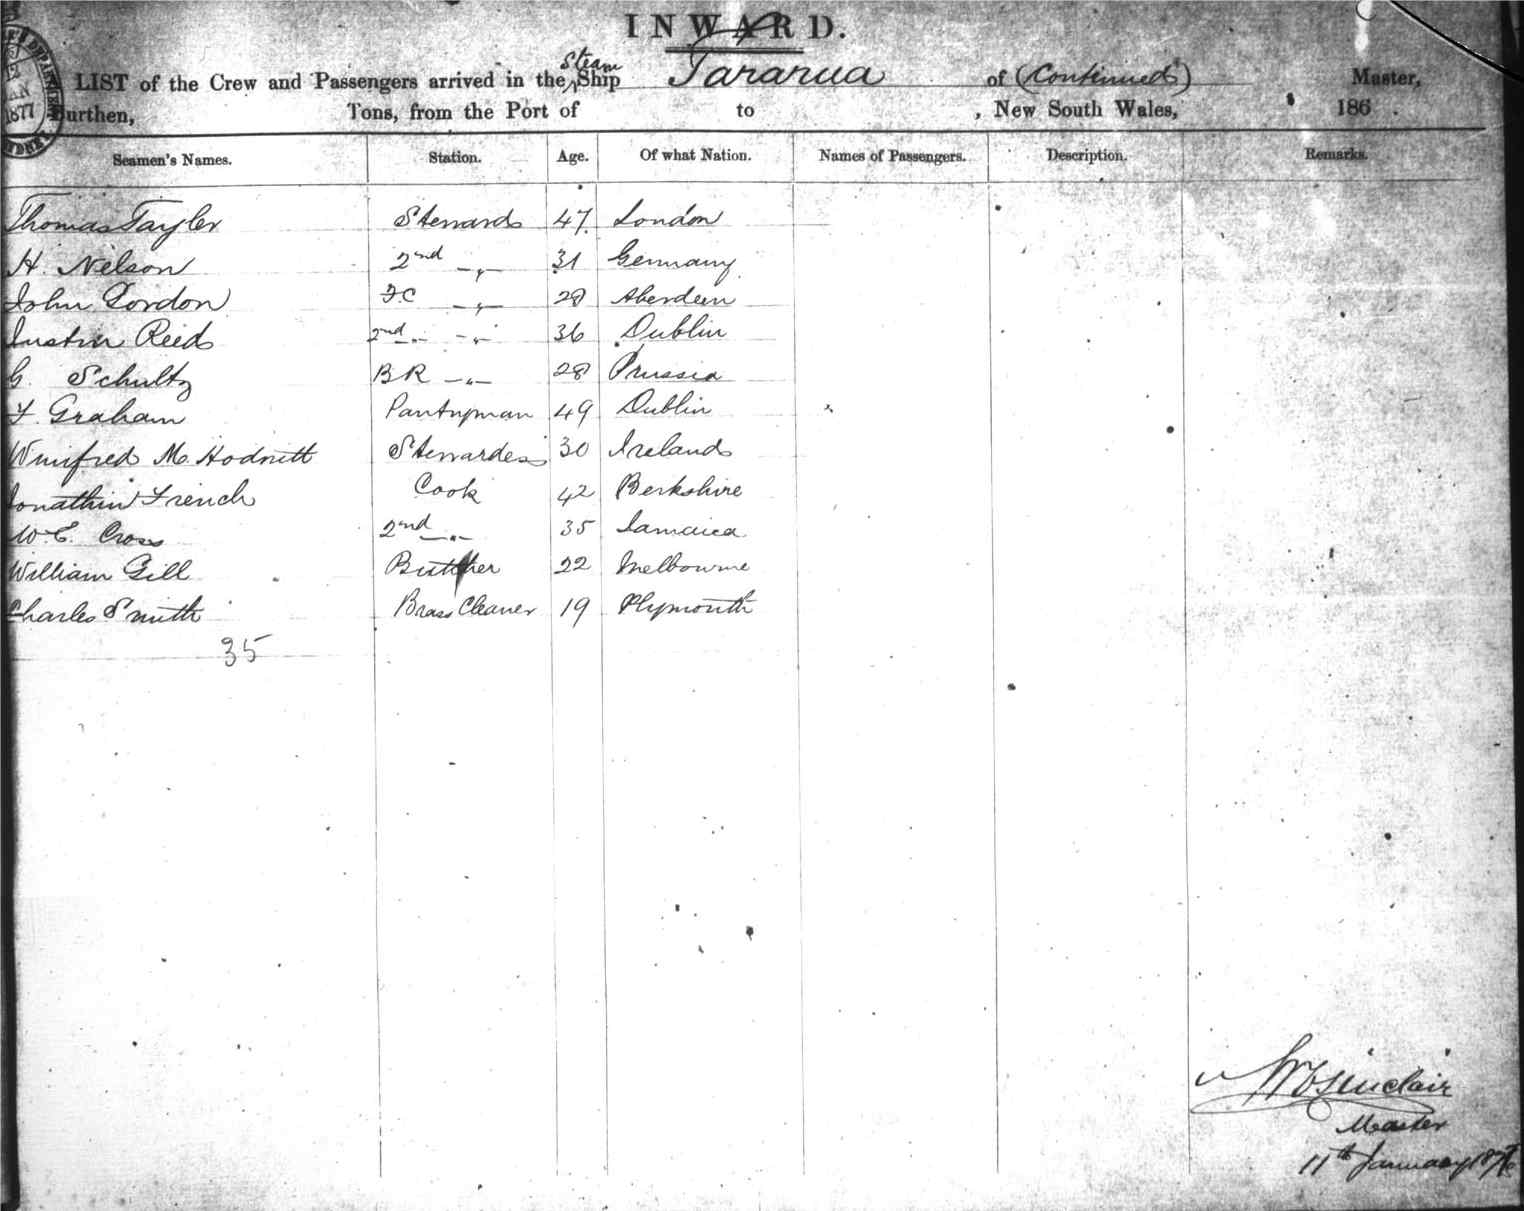 INWARD.
LIST of the Crew and Passengers arrived in the Steam Ship Tararua of (Continued) Master,
Burthen, Tons, from the Port of to , New South Wales, 186 .
1877
Seamen's Names. Station. Age. Of what Nation. Names of Passengers. Description. Remarks.
Thomas Tayler Stewards 47 London
H. Nelson 2nd -„- 31 Germany
John Gordon FC -„- 28 Aberdeen
Justin Reid 2nd -„- -„- 36 Dublin
G. Schultz BR -„- 28 Prussia
F. Graham Pantryman 49 Dublin
Winifred M. Hodnett Stewardess 30 Ireland
Jonathin French Cook 42 Berkshire
W.E. Cross 2nd -„- 35 Jamaica
William Gill Butcher 22 Melbourne
Charles Smith Brass Cleaner 19 Plymouth
35
Sinclair
Master
11th January 187